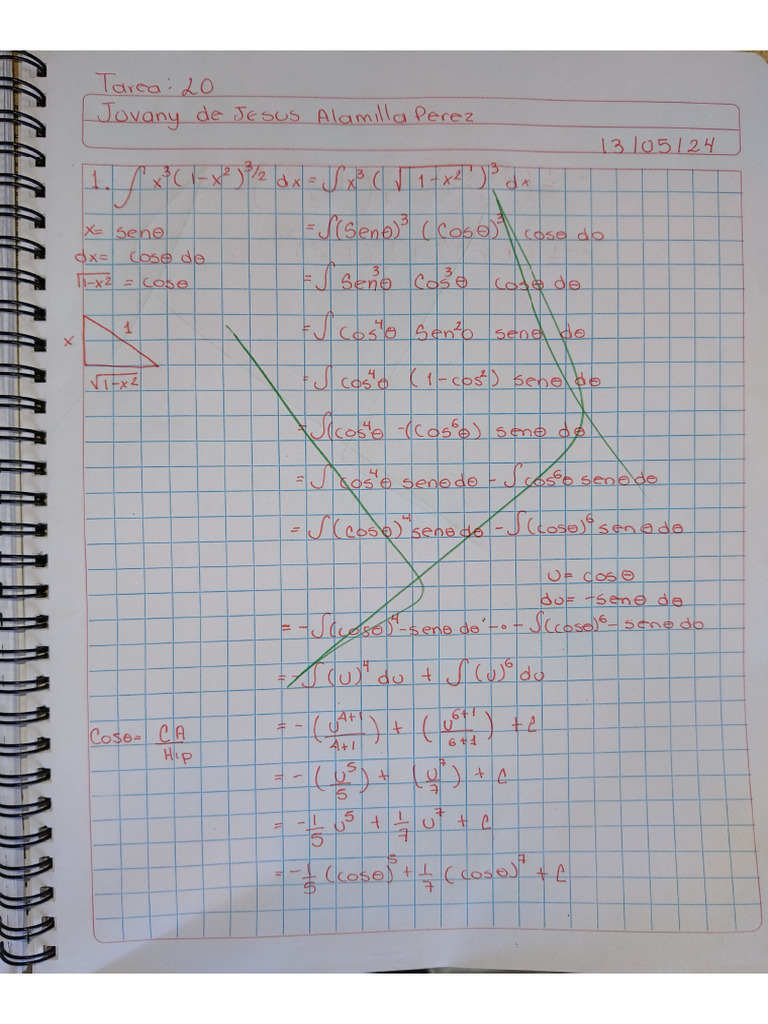 Tarea: 20
Jovany de Jesus Alamilla Perez
13/05/24
1. ∫ x³(1-x²)^3/2 dx = ∫x³ (√1-x²)³ dx
x= senθ
= ∫(Senθ)³ (Cosθ)³ cosθ dθ
dx= cosθ dθ
√1-x² = cosθ
= ∫ Sen³θ Cos³θ cosθ dθ
x
1
√1-x²
= ∫ cos⁴θ Sen²θ senθ dθ
= ∫ cos⁴θ (1-cos²) senθ dθ
= ∫(cos⁴θ -(cos⁶θ) senθ dθ
= ∫ cos⁴θ senθ dθ - ∫ cos⁶θ senθ dθ
= ∫(cosθ)⁴ senθ dθ - ∫(cosθ)⁶ senθ dθ
u= cosθ
du= -senθ dθ
= -∫(cosθ)⁴ - senθ dθ - - ∫(cosθ)⁶ - senθ dθ
= -∫(u)⁴ du + ∫(u)⁶ du
Cosθ= CA/Hip
= -(u^4+1/4+1) + (u^6+1/6+1) + C
= -(u⁵/5) + (u⁷/7) + C
= -1/5 u⁵ + 1/7 u⁷ + C
= -1/5 (cosθ)⁵ + 1/7 (cosθ)⁷ + C